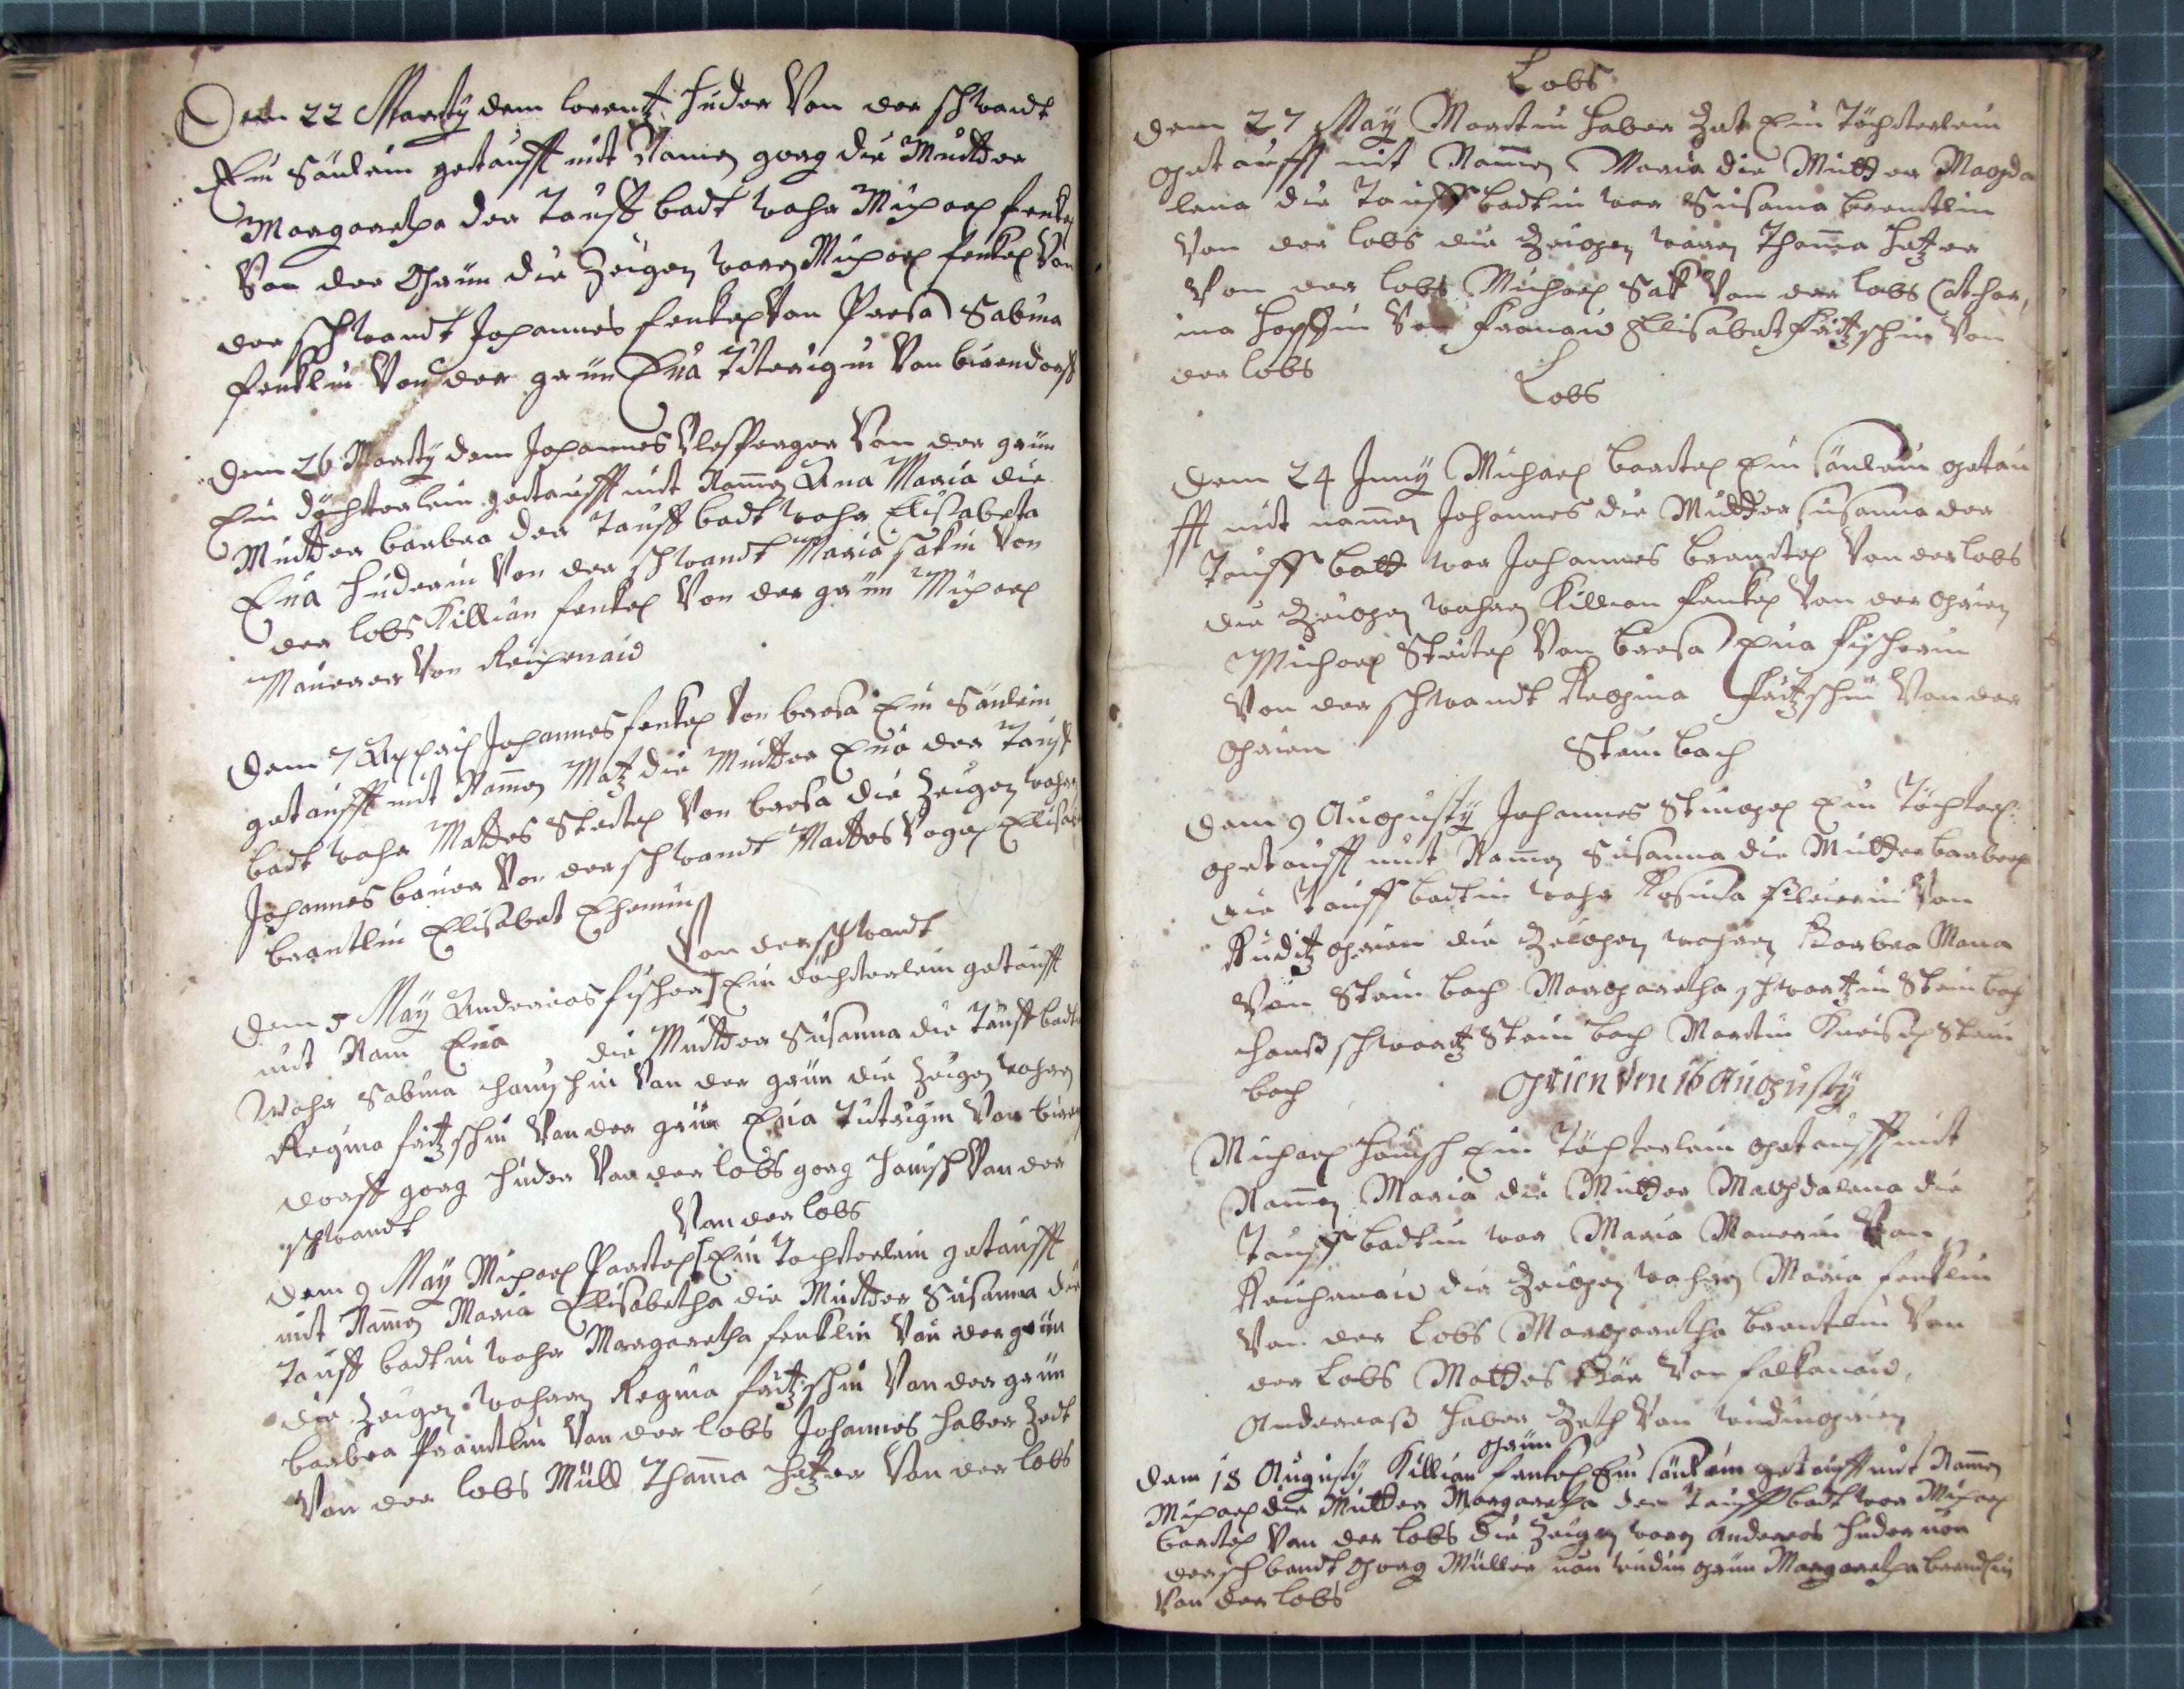 Den 22 Marty dem lorentz Huder Von der schwandt
Ein Sönlein getaufft mit Namen gorg die Mutter
Margaretha der Tauff badt wahr Michael fenkel
Von der Grün die Zeigen waren Michael fenkel Von
der schwandt Johannes fenkel Von Presa Sabina
fenklin Von der grün Eua Titerigin Von birendorff
Dem 26 Marty dem Johannes Von der grün
Ein döchterlein getaufft mit Namen Ana Maria die
Mutter barbra der Tauff badt wahr Elisabeta
Eua Huderin Von der schwandt Maria sakin Von
der lobs Killian fenkel Von der grün Michael
Maurer Von Reichenaw
Dem 7 Appril Johannes fenkel Von bresa Ein Sönlein
getaufft mit Namen Matz die Mutter Eua der Tauff
badt wahr Mattes Stertel Von bresa die Zeigen wahren
Johannes bauer Von der schwandt Mattes Vogel
brantlin Elisabet
Von der schwandt
Dem 5 May Andereas fischer Ein döchterlein getaufft
mit Nam Eua die Mutter Susanna die Tauff badtin
Wahr Sabina Hauschin Von der grün die Zeigen wahren
Regina fritzschin Von der grün Eua Titerigin Von biren
dorff gorg Huder Von der lobs gorg Hausch Von der
schwandt
Von der lobs
Dem 9 May Michael Partel Ein Tochterlein getaufft
mit Namen Maria Elisabetha die Mutter Susanna die
Tauff badtin wahr Margaretha fenklin Von der grün
die Zeigen wahren Regina fritzschin Von der grün
barbra Prandtlin Von der lobs Johannes haber Zedt
Von der lobs Müll Thama Hetzer Von der lobs
Lobs
Dem 27 May Martin haber Zet Ein Töchterlein
getaufft mit Namen Maria die Mutter Magda
lena die Tauff badtin war Susanna brandtlin
Von der lobs die Zeigen waren Thama Hetzer
Von der lobs Michael Sak Von der lobs Cathar,
ina Von Elisabet fritzschin Von
der lobs
Lobs
Dem 24 Juny Michael bartel Ein sönlein getau
fft mit namen Johannes die Mutter susanna der
Tauff batt war Johannes brandtel Von der lobs
die Zeigen wahren Killian fenkel Von der grien
Michael Stertel Von bresa Eua fischerin
Von der schwandt Regina fritzschin Von der
grien
Steinbach
Dem 9 Augusty Johannes Stingel Ein Töchterl:
getaufft mit Namen Susanna die Mutter barbra
die Tauff badtin wahr Rosina Von
Ruditz grien die Zeigen wahren Barbra Mana
Von Steinbach Margaretha schwartzin Steinbach
Hanß schwartz Steinbach Martin Stein
bach
Grien den 16 Augusty
Michael Hausch Ein Töchterlein getaufft mit
Namen Maria die Mutter Magdalena die
Tauff badtin war Maria Maurerin Von
Reichenaw die Zeigen wahren Maria fenklin
Von der Lobs Margaretha brantlin Von
der Lobs Mattes Bär Von falkenaw,
Andereaß haber Zeth Von windingrien
grün
Dem 18 Augusty Killian fenkel Ein sönlein getaufft mit Namen
Michael die Mutter Margaretha der Tauff badt war Michael
bartel Von der lobs die Zeigen waren Andereas Huder von
der schbandt gorg Müller von windin grün Margaretha brandlin
Von der lobs